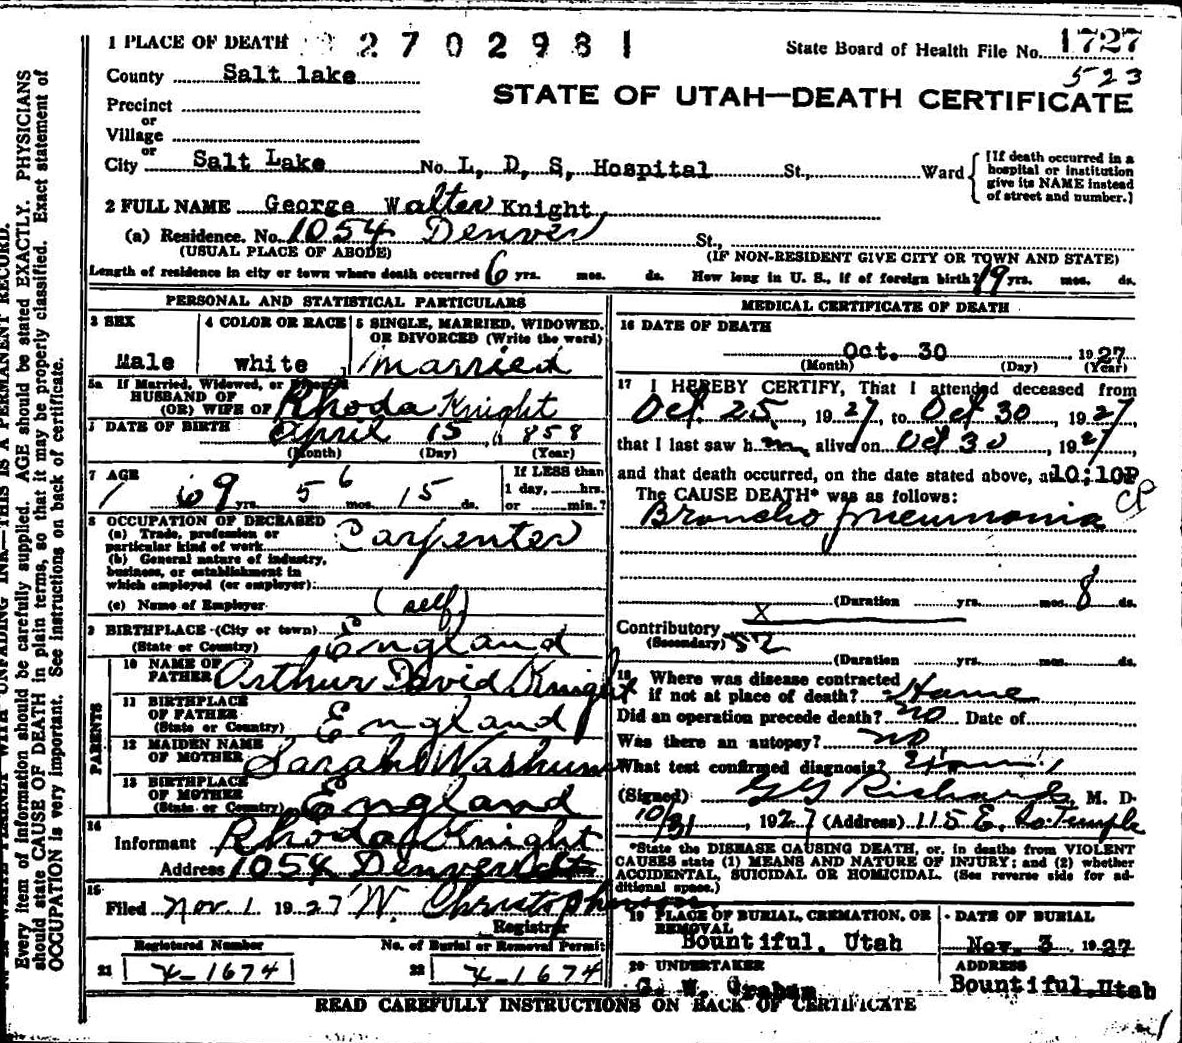 1 PLACE OF DEATH 2702981 State Board of Health File No. 1727
County Salt lake 523
STATE OF UTAH—DEATH CERTIFICATE
Precinct
or
Village
or
City Salt Lake No. L. D. S. Hospital St., Ward [If death occurred in a hospital or institution give its NAME instead of street and number.]
2 FULL NAME George Walter Knight
(a) Residence. No. 1054 Denver St.,
(USUAL PLACE OF ABODE) (IF NON-RESIDENT GIVE CITY OR TOWN AND STATE)
Length of residence in city or town where death occurred 6 yrs. mos. ds. How long in U. S., if of foreign birth? 19 yrs. mos. ds.
PERSONAL AND STATISTICAL PARTICULARS
3 SEX 4 COLOR OR RACE 5 SINGLE, MARRIED, WIDOWED, OR DIVORCED (Write the word)
Male white married
5a If Married, Widowed, or Divorced
HUSBAND OF
(OR) WIFE OF Rhoda Knight
DATE OF BIRTH April 15 1858
(Month) (Day) (Year)
7 AGE If LESS than
69 yrs. 5 6 mos. 15 ds. 1 day, hrs.
or min.?
8 OCCUPATION OF DECEASED
(a) Trade, profession or
particular kind of work Carpenter
(b) General nature of industry,
business, or establishment in
which employed (or employer):
(c) Name of Employer (self)
9 BIRTHPLACE (City or town)
(State or Country) England
PARENTS
10 NAME OF
FATHER Arthur David Knight
11 BIRTHPLACE
OF FATHER
(State or Country) England
12 MAIDEN NAME
OF MOTHER Sarah
13 BIRTHPLACE
OF MOTHER
(State or Country) England
14
Informant Rhoda Knight
Address 1054 Denver St
15
Filed Nov. 1 1927 W. Christopherson
Registrar
Registered Number No. of Burial or Removal Permit
21 4-1674 22 4-1674
MEDICAL CERTIFICATE OF DEATH
16 DATE OF DEATH
Oct. 30 1927
(Month) (Day) (Year)
17 I HEREBY CERTIFY, That I attended deceased from
Oct. 25, 1927, to Oct 30, 1927
that I last saw him alive on Oct 30, 1927
and that death occurred, on the date stated above, at 10:10P
The CAUSE DEATH* was as follows:
Broncho pneumonia
(Duration yrs. mos. 8 ds.
Contributory X
(Secondary) 52
(Duration yrs. mos. ds.
18 Where was disease contracted
if not at place of death? Home
Did an operation precede death? no Date of
Was there an autopsy? no
What test confirmed diagnosis?
(Signed) G G Richards, M. D.
10/31, 1927 (Address) 115 E. So Temple
*State the DISEASE CAUSING DEATH, or, in deaths from VIOLENT
CAUSES state (1) MEANS AND NATURE OF INJURY; and (2) whether
ACCIDENTAL, SUICIDAL OR HOMICIDAL. (See reverse side for ad-
ditional space.)
19 PLACE OF BURIAL, CREMATION, OR REMOVAL DATE OF BURIAL
Bountiful, Utah Nov. 3 1927
20 UNDERTAKER ADDRESS
G. W. Graham Bountiful, Utah
READ CAREFULLY INSTRUCTIONS ON BACK OF CERTIFICATE
Every item of information should be carefully supplied. AGE should be stated EXACTLY. PHYSICIANS
should state CAUSE OF DEATH in plain terms, so that it may be properly classified. Exact statement of
OCCUPATION is very important. See instructions on back of certificate.